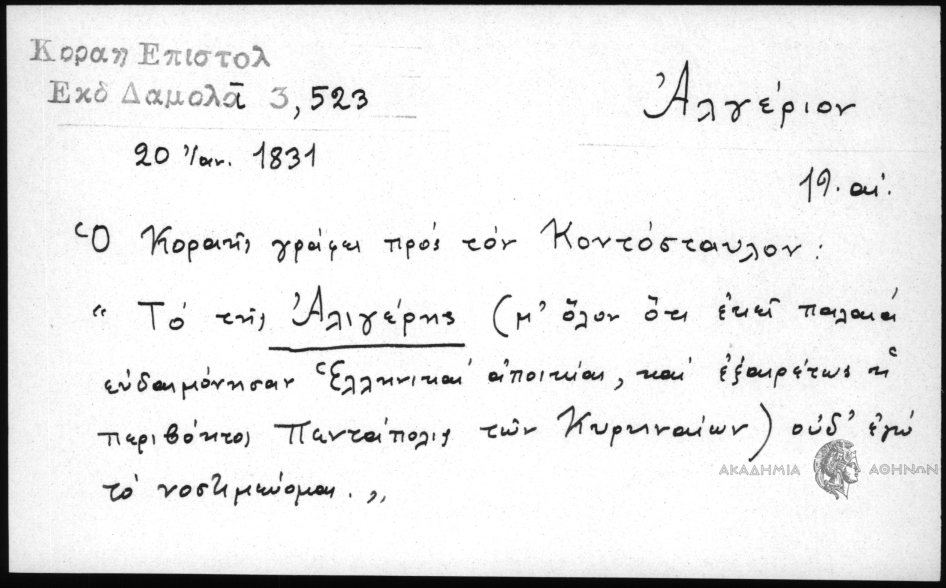 Κοραη Επιστολ
Εκδ Δαμολᾶ 3, 523
Ἀλγέριον
20 Ἰαν. 1831
19. αἰ.
Ὁ Κοραῆς γράφει πρός τόν Κοντόσταυλον:
“ Τό τῆς Ἀλιγέρης (μ' ὅλον ὅτι ἐκεῖ παλαιά
εὐδαιμόνησαν Ἑλληνικαί ἀποικίαι, καί ἐξαιρέτως ἡ
περιβόητος Πεντάπολις τῶν Κυρηναίων) οὐδ' ἐγώ
τό νοστιμεύομαι. „
ΑΚΑΔΗΜΙΑ ΑΘΗΝΩΝ